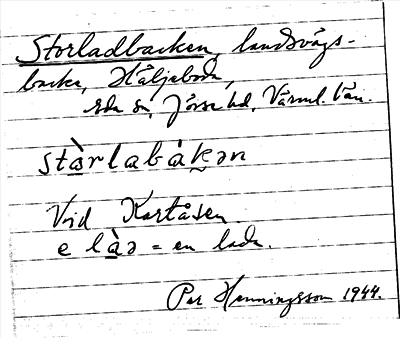 Storladbacken, landsvägs-
backe, Häljeboda,
Eda sn, Jösse hd, Värml. län.
stàrlabàkən
Vid Kartåsen.
e làə = en lada.
Per Henningsson 1944.